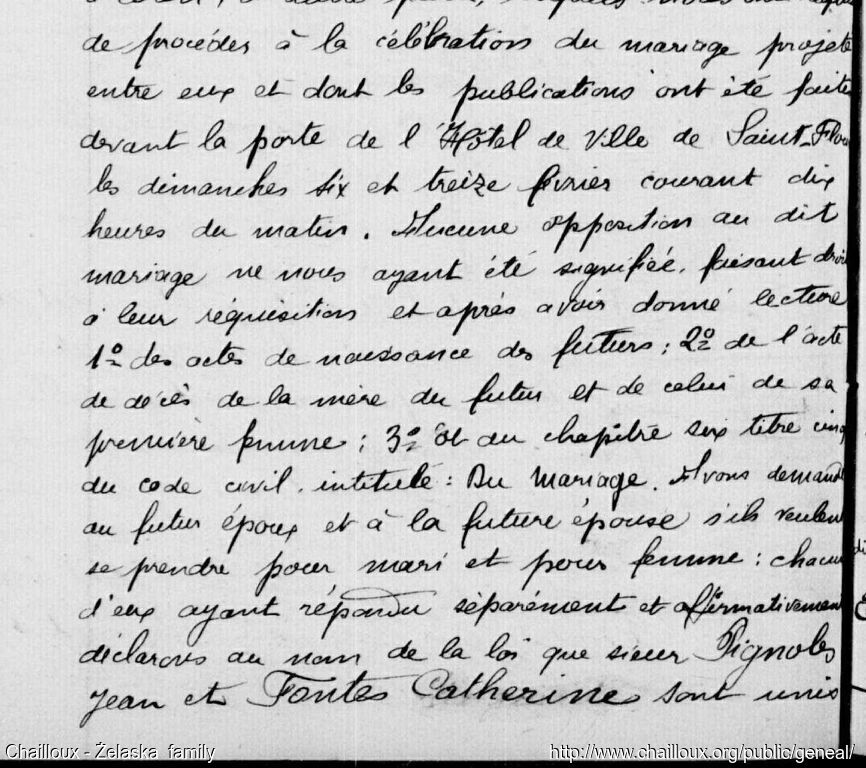 de procéder à la célébration du mariage projeté
entre eux et dont les publications ont été faites
devant la porte de l'Hôtel de Ville de Saint-Flour
les dimanches six et treize février courant dix
heures du matin. Aucune opposition au dit
mariage ne nous ayant été signifiée, faisant droit
à leur réquisition et après avoir donné lecture
1º des actes de naissance des futurs; 2º de l'acte
de décès de la mère du futur et de celui de sa
première femme; 3º et du chapitre six titre cinq
du code civil, intitulé: Du Mariage. Avons demandé
au futur époux et à la future épouse s'ils veulent
se prendre pour mari et pour femme: chacun
d'eux ayant répondu séparément et affirmativement
déclarons au nom de la loi que sieur Pignoles
Jean et Fontes Catherine sont unis
Chailloux - Żelaska family
http://www.chailloux.org/public/geneal/